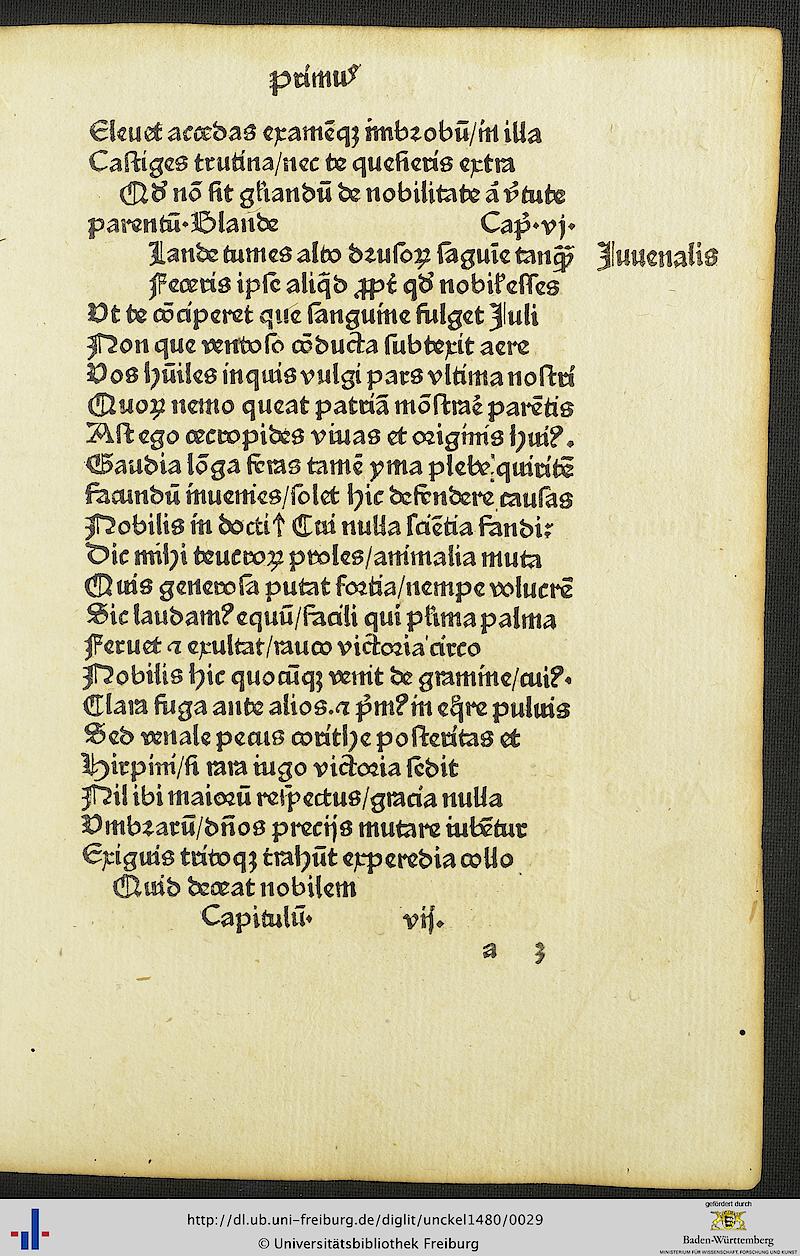 primꝰ
Eleuet accedas examēqꝫ imbꝛobū/in illa
Castiges trutina/nec te quesieris extra
Qd̕ nō sit gl̕iandū de nobilitate aū v̕tute
parentū·Blande Cap̕·vj·
Iande tumes alto dꝛusoꝝ saguīe tanqꝫ̄ Iuuenalis
Feceris ipse aliq̄d ꝓpt̕ qd̕ nobil̕ esses
Vt te cōciperet que sanguine fulget Iuli
Non que ventoso cōducta subtexit aere
Vos hūiles inquis vulgi pars vltima nostri
Quoꝝ nemo queat patriā mōstrar̕ parētis
Ast ego cecropides viuas et oꝛiginis huiꝰ.
Gaudia lōga feras tamē yma plebe: quiritē
facundū inuenies/solet hic defendere causas
Nobilis in docti† Cui nulla sciētia fandi:
Dic mihi teucroꝝ proles/animalia muta
Quis generosa putat foꝛtia/nempe volucrē
Sic laudamꝰ equū/facili qui pl̕ima palma
Feruet ⁊ exultat/rauco victoꝛia circo
Nobilis hic quocūqꝫ venit de gramine/cuiꝰ·
Clara fuga ante alios.⁊ p̄mꝰ in eq̄re puluis
Sed venale pecus coꝛithe posteritas et
Hirpini/si rara iugo victoꝛia sedit
Nil ibi maioꝛū respectus/gracia nulla
Vmbꝛarū/dn̄os precijs mutare iubētur
Exiguis tritoqꝫ trahūt experedia collo
Quid deceat nobilem
Capitulū· vij.
a 3
http://dl.ub.uni-freiburg.de/diglit/unckel1480/0029
© Universitätsbibliothek Freiburg
gefördert durch
Baden-Württemberg
MINISTERIUM FÜR WISSENSCHAFT, FORSCHUNG UND KUNST